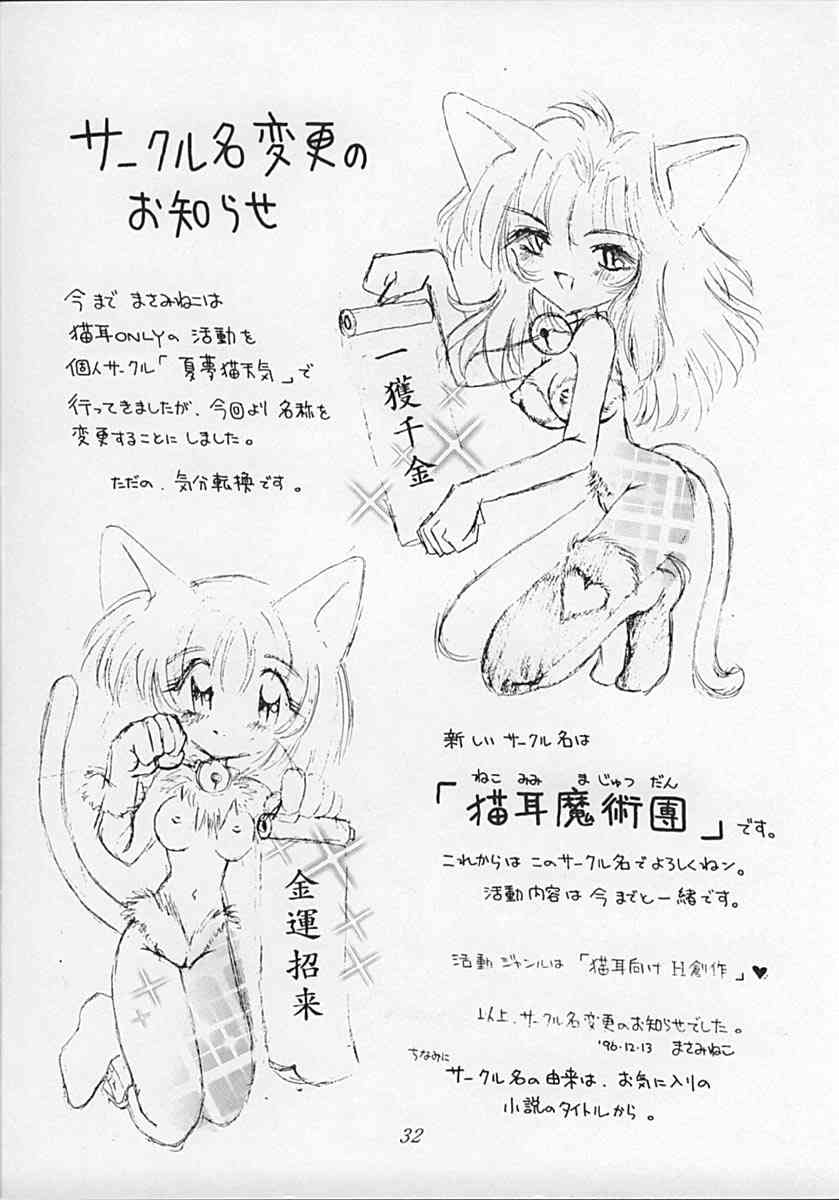 サークル名変更の
お知らせ
今まで まさみねこは
猫耳ONLYの 活動を
個人サークル「夏夢猫天気」で
行ってきましたが、今回より 名称を
変更することにしました。
ただの、気分転換です。
一獲千金
金運招来
新しい サークル名は
ねこ みみ ま じゅつ だん
「猫耳魔術團」です。
これからは このサークル名で よろしくねン。
活動内容は 今までと 一緒です。
活動ジャンルは 「猫耳向け H創作」♥
以上、サークル名変更のお知らせでした。
'96.12.13 まさみねこ
ちなみに
サークル名の由来は、お気に入りの
小説のタイトルから。
32